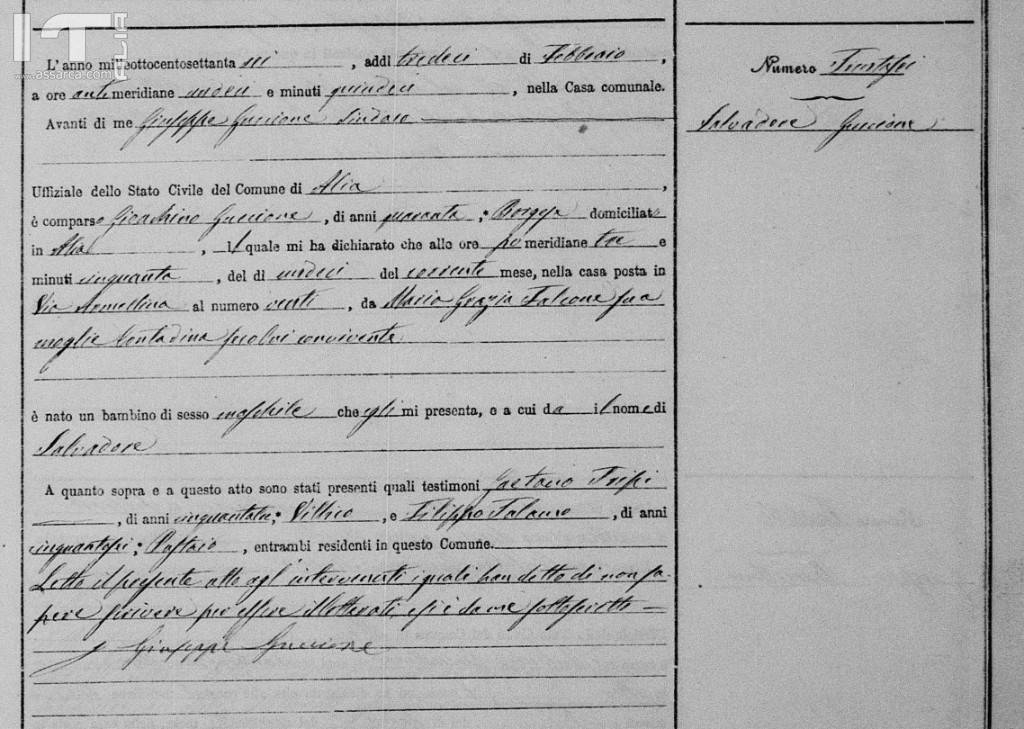 IT
ALIA
www.assarca.com
L'anno milleottocentosettanta sei, addì tredeci di Febbraio,
a ore antimeridiane undeci e minuti quindeci, nella Casa comunale.
Avanti di me Giuseppe Guccione Sindaco
Uffiziale dello Stato Civile del Comune di Alia,
è comparso Gioachino Guccione, di anni quaranta; Borgese domiciliato
in Alia, il quale mi ha dichiarato che alle ore pomeridiane tre e
minuti cinquanta, del dì undeci del corrente mese, nella casa posta in
Via al numero venti, da Maria Grazia Falcone sua
moglie Contadina seco lui convivente
è nato un bambino di sesso maschile che egli mi presenta, e a cui da il nome di
Salvadore
A quanto sopra e a questo atto sono stati presenti quali testimoni Gaetano Tripi
, di anni; Villico, e Filippo Talauro, di anni
cinquantasei; Pastaio, entrambi residenti in questo Comune.
Letto il presente atto agl'intervenuti i quali han detto di non sa-
pere scrivere per essere illetterati, si è da me sottoscritto
Giuseppe Guccione
Numero Trentasei
Salvadore Guccione